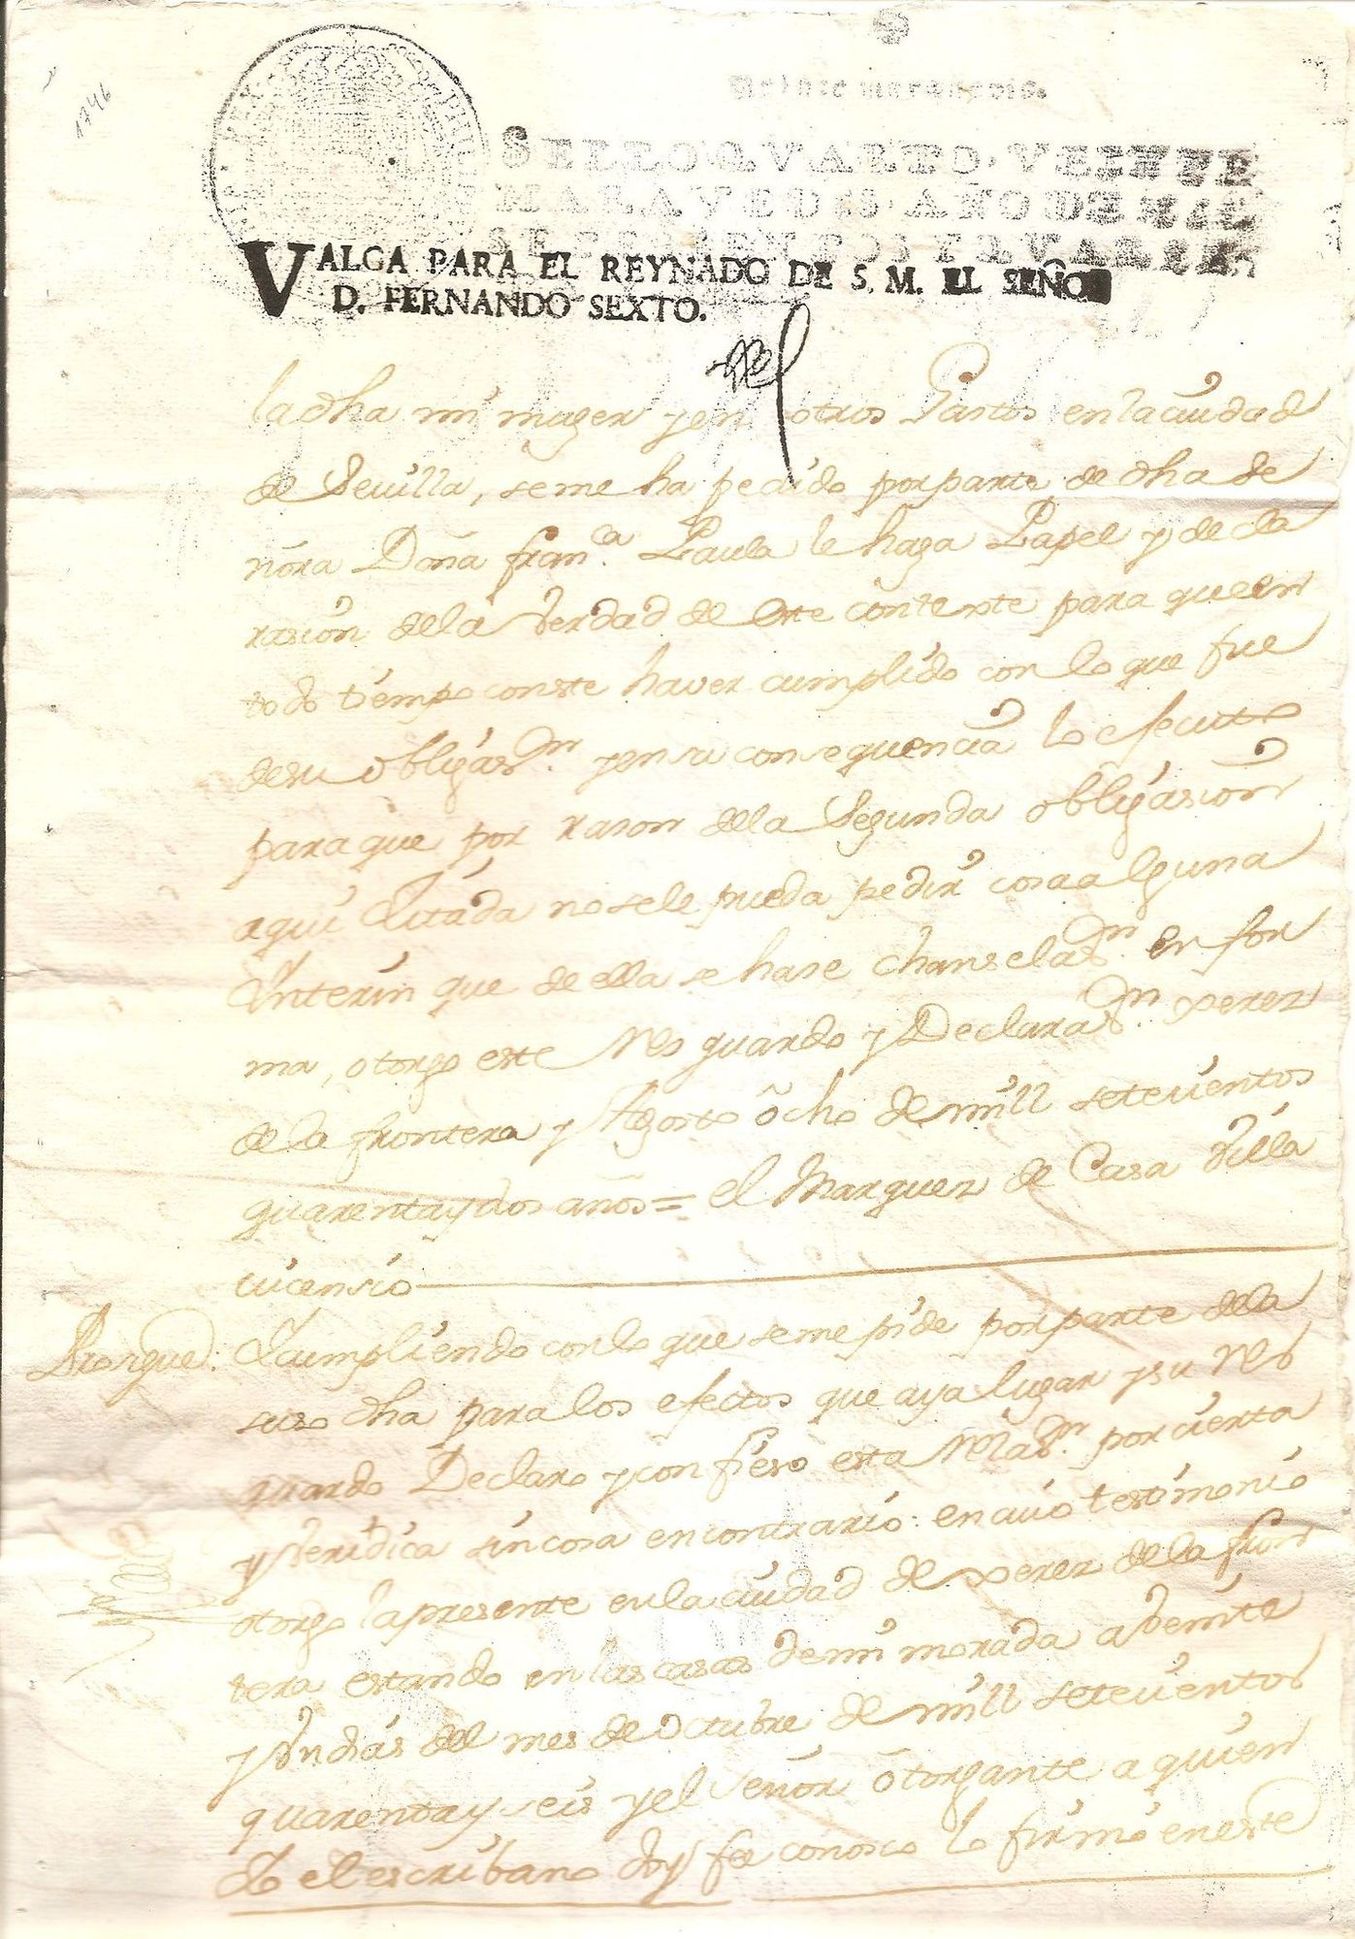 1746
Veinte maravedis.
SELLO QVARTO, VEINTE
MARAVEDIS, AÑO DE MIL
SETECIENTOS Y QVARENTA
VALGA PARA EL REYNADO DE S. M. EL SEÑOR
D. FERNANDO SEXTO.
la dha mi muger y en otros Gastos en la ciudad
de Sevilla, se me ha pedido por parte de dha se
ñora Doña fran.ca Paula le haga Papel y decla
rasion de la verdad de este contexte para que en
todo tiempo conste haver cumplido con lo que fue
de su obligas.on y en su consequencia lo efecutto
para que por rason de la Segunda obligasion
aqui Citada no se le pueda pedir cosa alguna
Interin que de ella se hase chanselas.on en for
ma, otorgo este resguardo y Declaras.on Xerez
de la frontera y Agosto ocho de mill setecientos
quarenta y dos años = el Marquez de Casa Villa
vicensio
Prosigue: Y cumpliendo con lo que se me pide por parte de la
suso dha para los efectos que aya lugar y su res
guardo Declaro y confieso esta relas.on por cierta
y veridica sin cosa en contrario: en cuio testimonio
otorgo la presente en la ciudad de Xerez de la fron
tera estando en las casas de mi morada a veinte
y un dias del mes de Octubre de mill setecientos
quarenta y seis y el señor otorgante a quien
Yo el escribano doy fee conosco lo firmó en este